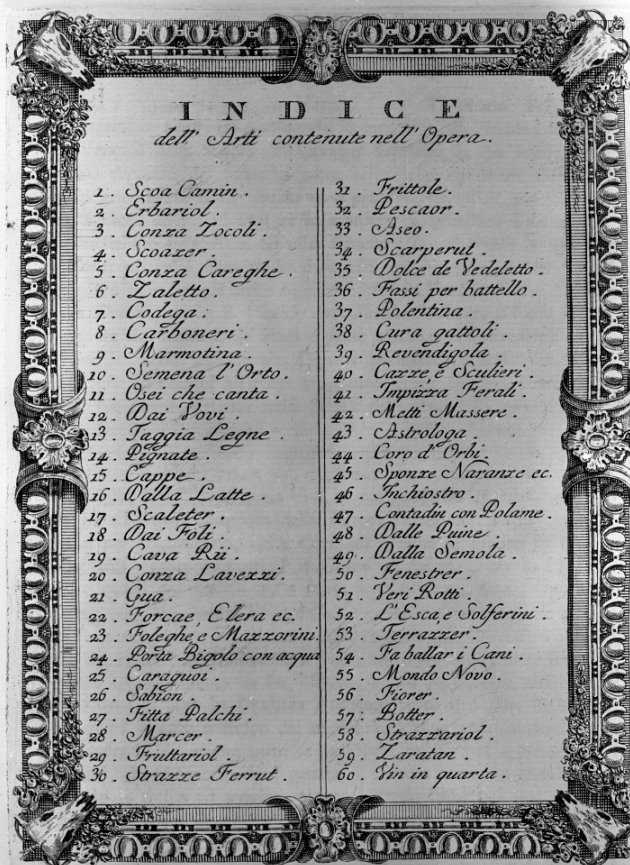 INDICE
dell' Arti contenute nell' Opera.
1. Scoa Camin.
2. Erbariol.
3. Conza Zocoli.
4. Scoazer.
5. Conza Careghe.
6. Zaletto.
7. Codega.
8. Carboneri.
9. Marmotina.
10. Semena l'Orto.
11. Osei che canta.
12. Dai Vovi.
13. Taggia Legne.
14. Pignate.
15. Cappe.
16. Dalla Latte.
17. Scaleter.
18. Dai Foli.
19. Cava Rii.
20. Conza Lavezzi.
21. Gua.
22. Forcae, Elera ec.
23. Foleghe, e Mazzorini.
24. Porta Bigolo con acqua
25. Caraguoi.
26. Sabion.
27. Fitta Palchi.
28. Marcer.
29. Fruttariol.
30. Strazze Ferrut.
31. Frittole.
32. Pescaor.
33. Aseo.
34. Scarperut.
35. Dolce de Vedeletto.
36. Fassi per battello.
37. Polentina.
38. Cura gattoli.
39. Revendigola.
40. Cazze, e Sculieri.
41. Impizza Ferali.
42. Metti Massere.
43. Astrologa.
44. Coro d' Orbi.
45. Sponze Naranze ec.
46. Inchiostro.
47. Contadin con Polame.
48. Dalle Puine.
49. Dalla Semola.
50. Fenestrer.
51. Veri Rotti.
52. L'Esca, e Solferini.
53. Terrazzer.
54. Fa ballar i Cani.
55. Mondo Novo.
56. Fiorer.
57. Botter.
58. Strazzariol.
59. Zaratan.
60. Vin in quarta.